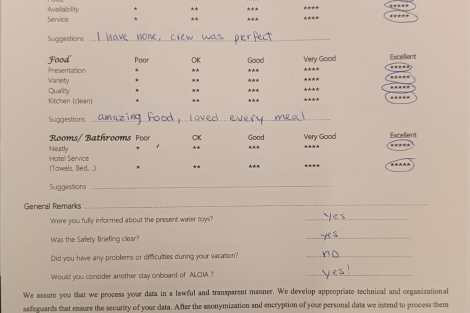 Availability * ** *** **** *****
Service * ** *** **** *****
Suggestions I have none, crew was perfect
Food Poor OK Good Very Good Excellent
Presentation * ** *** **** *****
Variety * ** *** **** *****
Quality * ** *** **** *****
Kitchen (clean) * ** *** **** *****
Suggestions amazing food, loved every meal
Rooms/ Bathrooms Poor OK Good Very Good Excellent
Neatly * ** *** **** *****
Hotel Service
(Towels, Bed,..) * ** *** **** *****
Suggestions
General Remarks
Were you fully informed about the present water toys? yes
Was the Safety Briefing clear? yes
Did you have any problems or difficulties during your vacation? no
Would you consider another stay onboard of ALOIA? yes!
We assure you that we process your data in a lawful and transparent manner. We develop appropriate technical and organizational
safeguards that ensure the security of your data. After the anonymization and encryption of your personal data we intend to process them